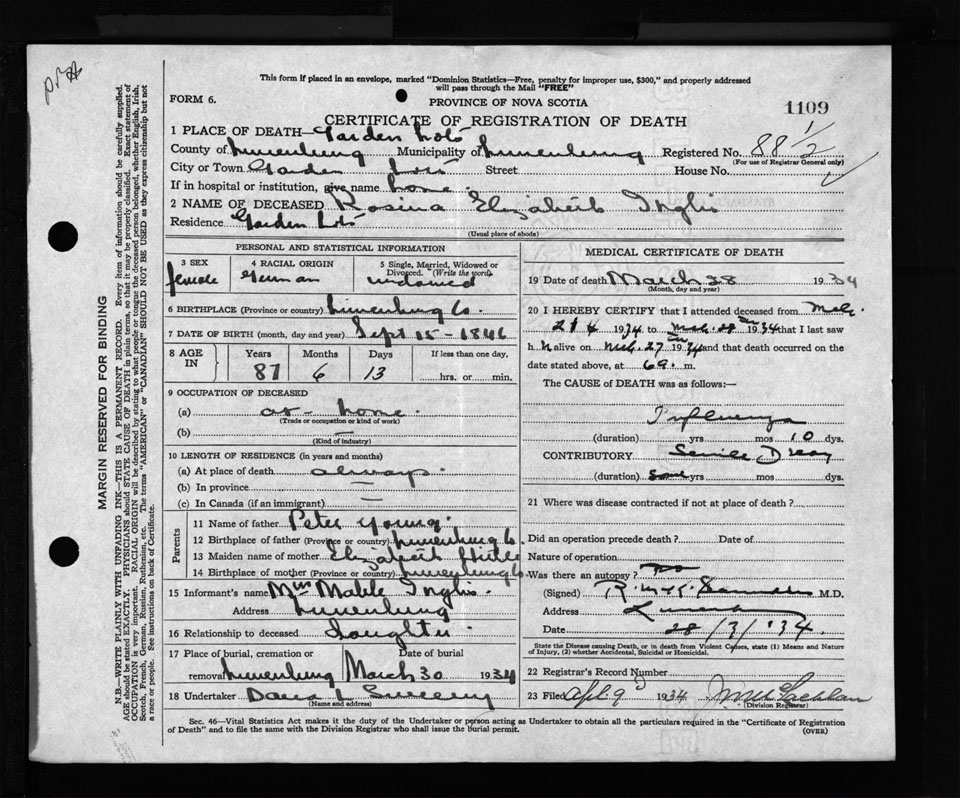 This form if placed in an envelope, marked "Dominion Statistics—Free, penalty for improper use, $300," and properly addressed
will pass through the Mail "FREE"
FORM 6.
PROVINCE OF NOVA SCOTIA
1109
CERTIFICATE OF REGISTRATION OF DEATH
1 PLACE OF DEATH— Garden Lots
County of Lunenburg Municipality of Lunenburg Registered No. 88 1/2
(For use of Registrar General only)
City or Town Garden Lots Street House No.
If in hospital or institution, give name home
2 NAME OF DECEASED Rosina Elizabeth Inglis
Residence Garden Lots
(Usual place of abode)
PERSONAL AND STATISTICAL INFORMATION
3 SEX female
4 RACIAL ORIGIN German
5 Single, Married, Widowed or Divorced. (Write the word) widowed
6 BIRTHPLACE (Province or country) Lunenburg Co.
7 DATE OF BIRTH (month, day and year) Sept 15 - 1846
8 AGE IN Years 87 Months 6 Days 13 If less than one day. hrs. or min.
9 OCCUPATION OF DECEASED
(a) at - home
(Trade or occupation or kind of work)
(b) —
(Kind of industry)
10 LENGTH OF RESIDENCE (in years and months)
(a) At place of death always
(b) In province —
(c) In Canada (if an immigrant) —
Parents
11 Name of father Peter Young
12 Birthplace of father (Province or country) Lunenburg Co.
13 Maiden name of mother Elizabeth Hirtle
14 Birthplace of mother (Province or country) Lunenburg Co.
15 Informant's name Mrs Mable Inglis
Address Lunenburg
16 Relationship to deceased Daughter
17 Place of burial, cremation or removal Lunenburg Date of burial March 30 1934
18 Undertaker
(Name and address)
MEDICAL CERTIFICATE OF DEATH
19 Date of death March 28 1934
(Month, day and year)
20 I HEREBY CERTIFY that I attended deceased from Mch.
1934 to Mch. 28 1934 that I last saw
h alive on Mch. 27 1934 and that death occurred on the
date stated above, at 6 a. m.
The CAUSE of DEATH was as follows:—
Influenza
(duration) yrs mos 10 dys.
CONTRIBUTORY Senile Decay
(duration) some yrs mos dys.
21 Where was disease contracted if not at place of death?
Did an operation precede death? Date of
Nature of operation
Was there an autopsy? no
(Signed) Saunders M.D.
Address Lunenburg
Date 28/3/'34.
State the Disease causing Death, or in death from Violent Causes, state (1) Means and Nature
of Injury, (2) whether Accidental, Suicidal or Homicidal.
22 Registrar's Record Number
23 Filed Apl 9 1934
(Division Registrar)
Sec. 46—Vital Statistics Act makes it the duty of the Undertaker or person acting as Undertaker to obtain all the particulars required in the "Certificate of Registration
of Death" and to file the same with the Division Registrar who shall issue the burial permit.
(OVER)
MARGIN RESERVED FOR BINDING
N.B.—WRITE PLAINLY WITH UNFADING INK—THIS IS A PERMANENT RECORD. Every item of information should be carefully supplied.
AGE should be stated EXACTLY. PHYSICIANS should STATE CAUSE OF DEATH in plain terms, so that it may be properly classified. Exact statement of
OCCUPATION is very important. RACIAL ORIGIN will be described by stating to what people or tongue the deceased person belonged, whether English, Irish,
Scotch, French, German, Russian, Ruthenian, etc. The terms "AMERICAN" or "CANADIAN" SHOULD NOT BE USED as they express citizenship but not
a race or people. See instructions on back of Certificate.